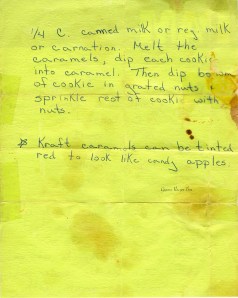 1/4 C. canned milk or reg milk
or carnation. Melt the
caramels, dip each cookie
into caramel. Then dip bottom
of cookie in grated nuts &
sprinkle rest of cookie with
nuts.
* Kraft caramels can be tinted
red to look like candy apples